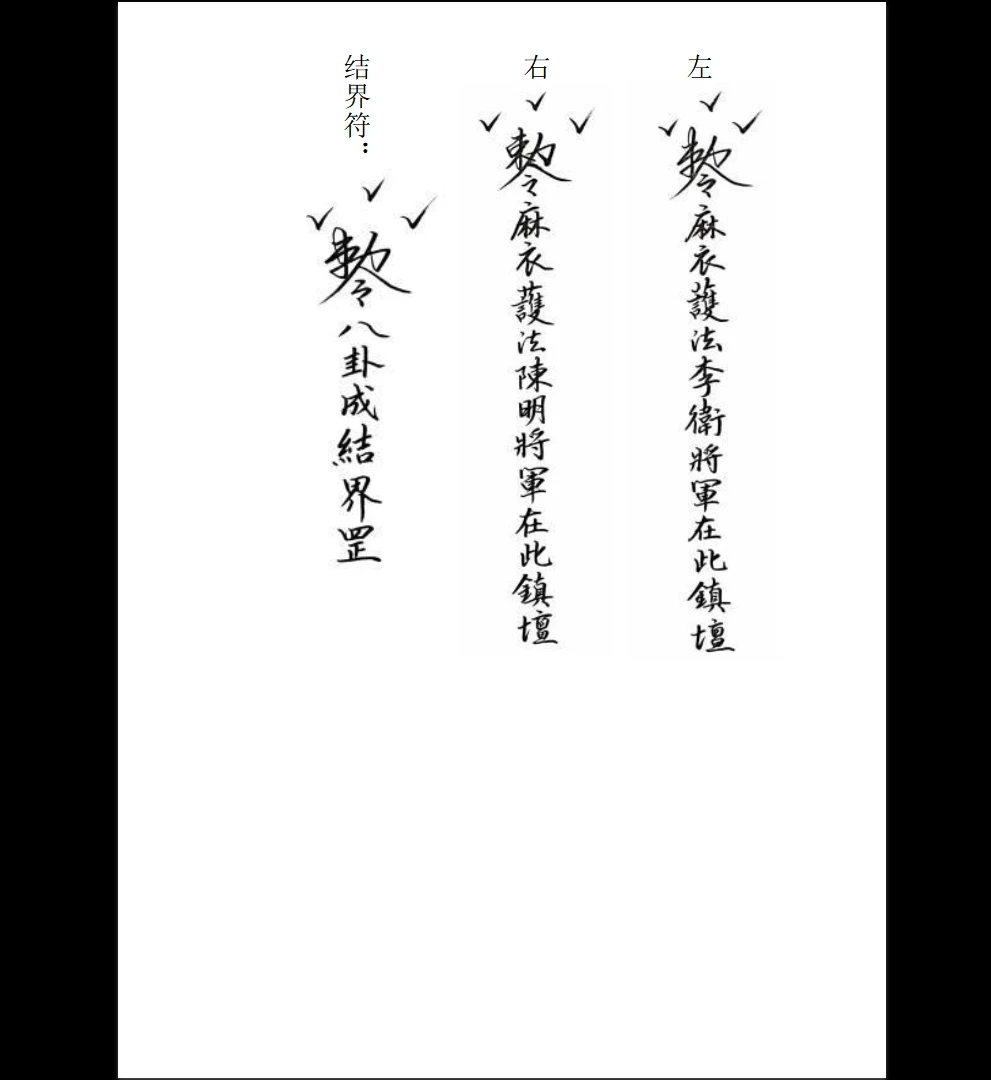 左
敕令麻衣護法李衛將軍在此鎮壇
右
敕令麻衣護法陳明將軍在此鎮壇
结界符：
敕令八卦成結界罡